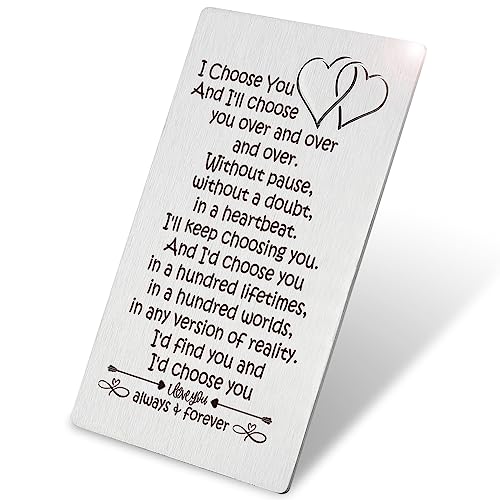 I Choose You
And I'll choose
you over and over
and over.
Without pause,
without a doubt,
in a heartbeat.
I'll keep choosing you.
And I'd choose you
in a hundred lifetimes,
in a hundred worlds,
in any version of reality.
I'd find you and
I'd choose you
I love you
always & forever